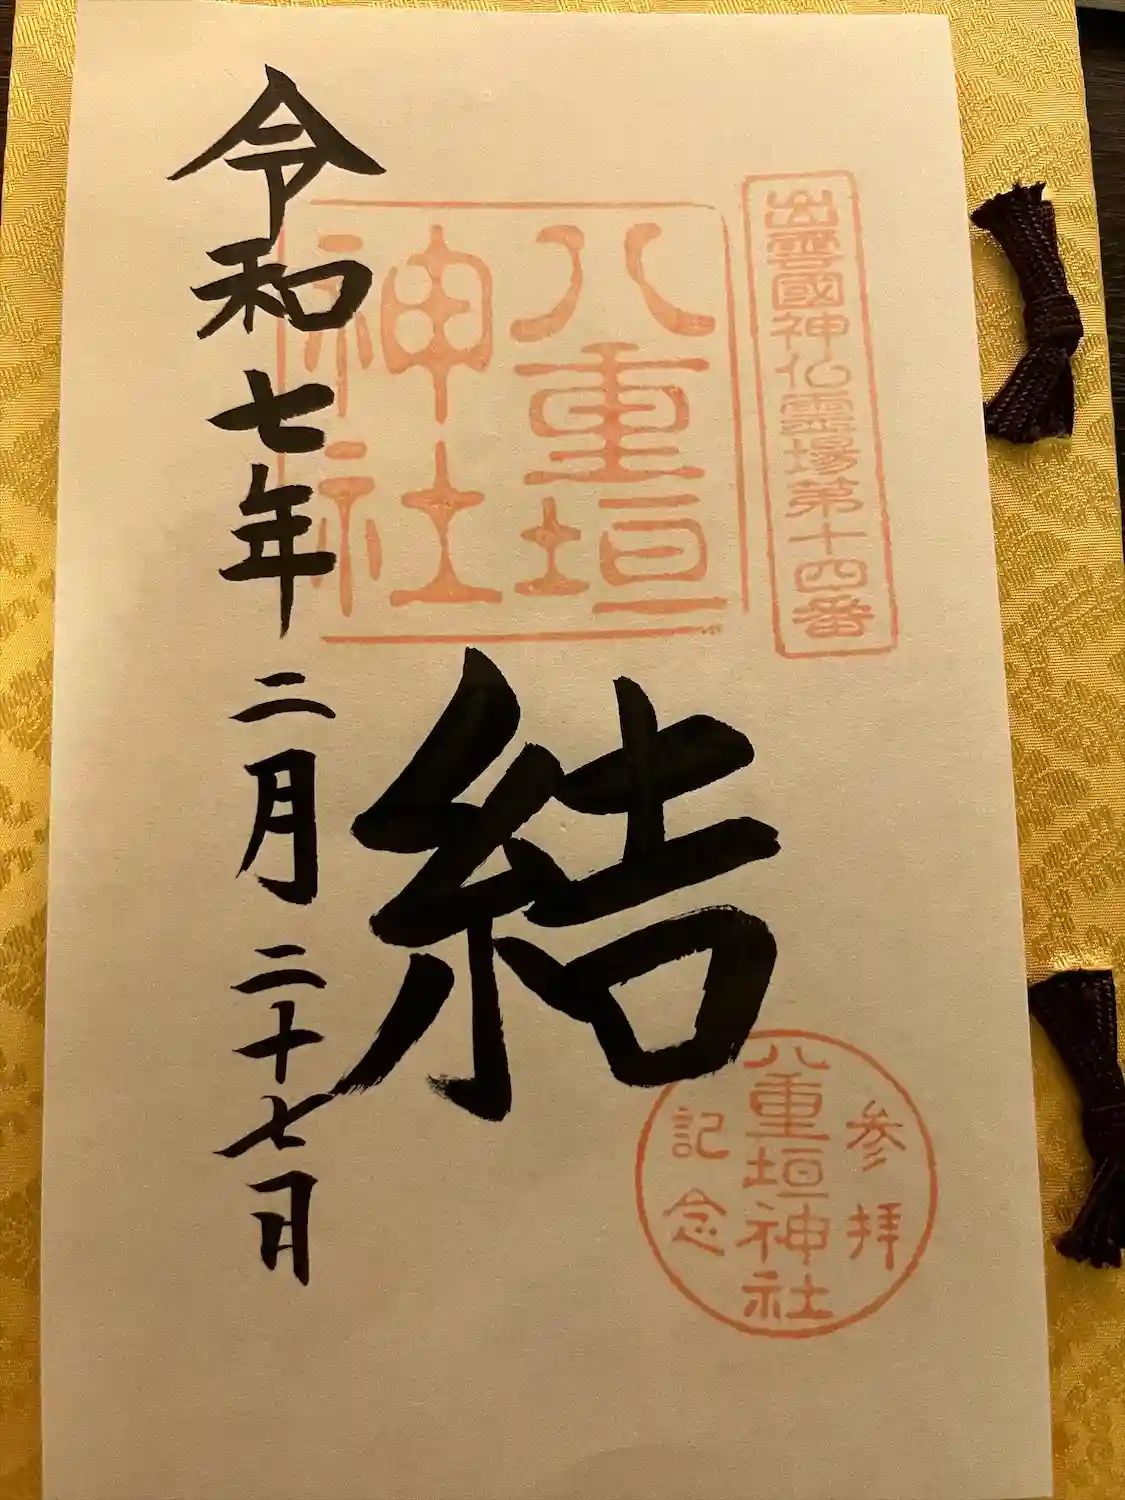 出雲國神仏霊場第十四番
八重垣
神社
結
参拝
八重垣神社
記念
令和七年二月二十七日